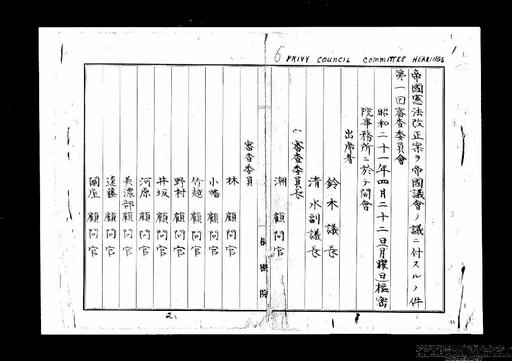 6 PRIVY COUNCIL COMMITTEE HEARINGS
帝國憲法改正案ヲ帝國議會ノ議ニ付スルノ件
第一回審査委員會
昭和二十一年四月二十二日(月曜日)樞密
院事務所ニ於テ開會
出席者
鈴木議長
清水副議長
審査委員長
潮顧問官
樞密院
審査委員
林顧問官
小幡顧問官
竹越顧問官
野村顧問官
井坂顧問官
河原顧問官
美濃部顧問官
遠藤顧問官
關屋顧問官
2